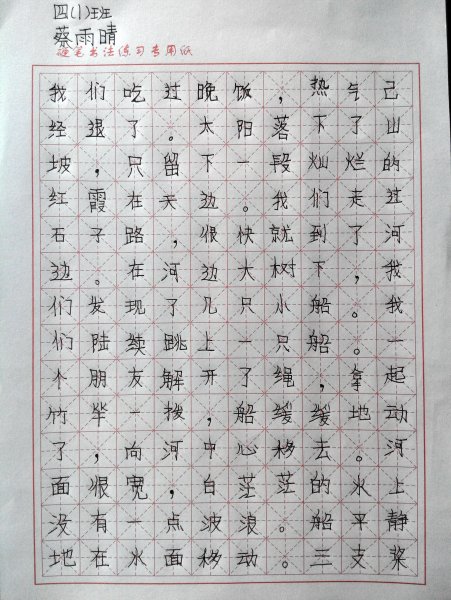 四(1)班
蔡雨晴
硬笔书法练习专用纸
我们吃过晚饭，热气已
经退了。太阳落下了山
坡，只留下一段灿烂的
红霞在天边。我们走过
石子路，很快就到了河
边。在河边大树下，我
们发现了几只小船。我
们陆续跳上一只船。一
个朋友解开了绳，拿起
竹竿一拨，船缓缓地动
了，向河中心移去。河
面很宽，白茫茫的水上
没有一点波浪。船平静
地在水面移动。三支桨